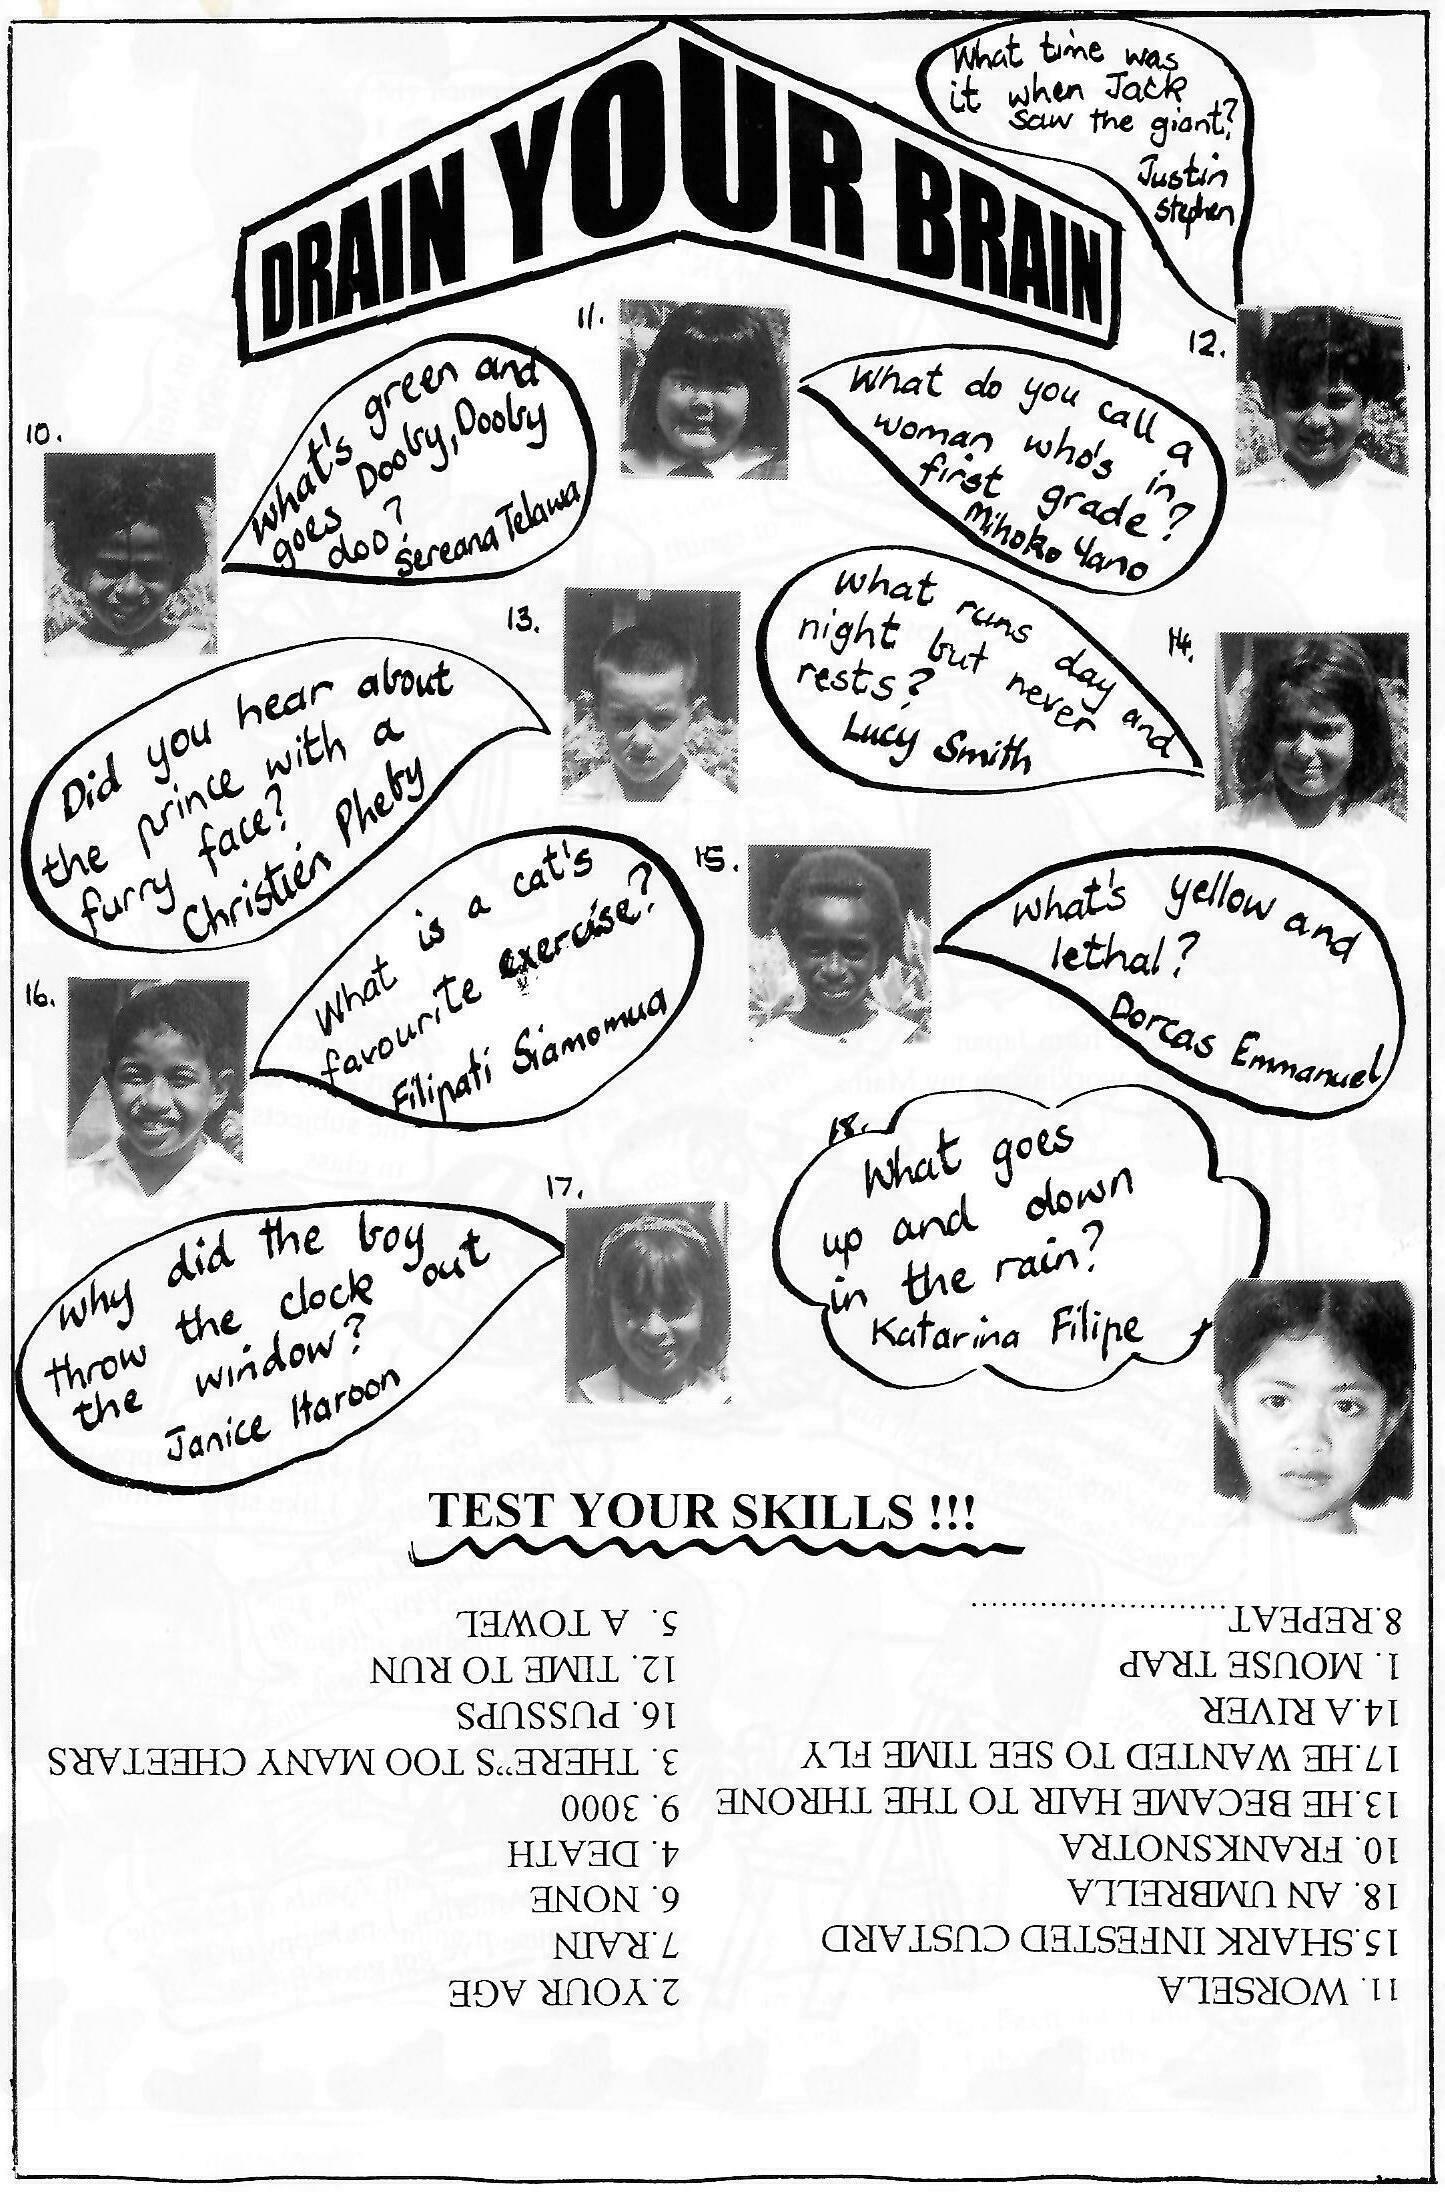 DRAIN YOUR BRAIN
What time was
it when Jack
saw the giant?
Justin
Stephen
10.
What's green and
goes Dooby, Dooby
doo?
Sereana Telawa
11.
What do you call a
woman who's in
first grade?
Mihoko Yano
12.
13.
Did you hear about
the prince with a
furry face?
Christién Pheby
What runs day and
night but never
rests?
Lucy Smith
14.
15.
What's yellow and
lethal?
Dorcas Emmanuel
16.
What is a cat's
favourite exercise?
Filipati Siamomua
17.
Why did the boy
throw the clock out
the window?
Janice Haroon
18.
What goes
up and down
in the rain?
Katarina Filipe
TEST YOUR SKILLS !!!
11. WORSELA
15.SHARK INFESTED CUSTARD
18. AN UMBRELLA
10. FRANKSNOTRA
13.HE BECAME HAIR TO THE THRONE
17.HE WANTED TO SEE TIME FLY
14.A RIVER
1. MOUSE TRAP
8.REPEAT..........................
2.YOUR AGE
7.RAIN
6. NONE
4. DEATH
9. 3000
3. THERE"S TOO MANY CHEETARS
16. PUSSUPS
12. TIME TO RUN
5. A TOWEL